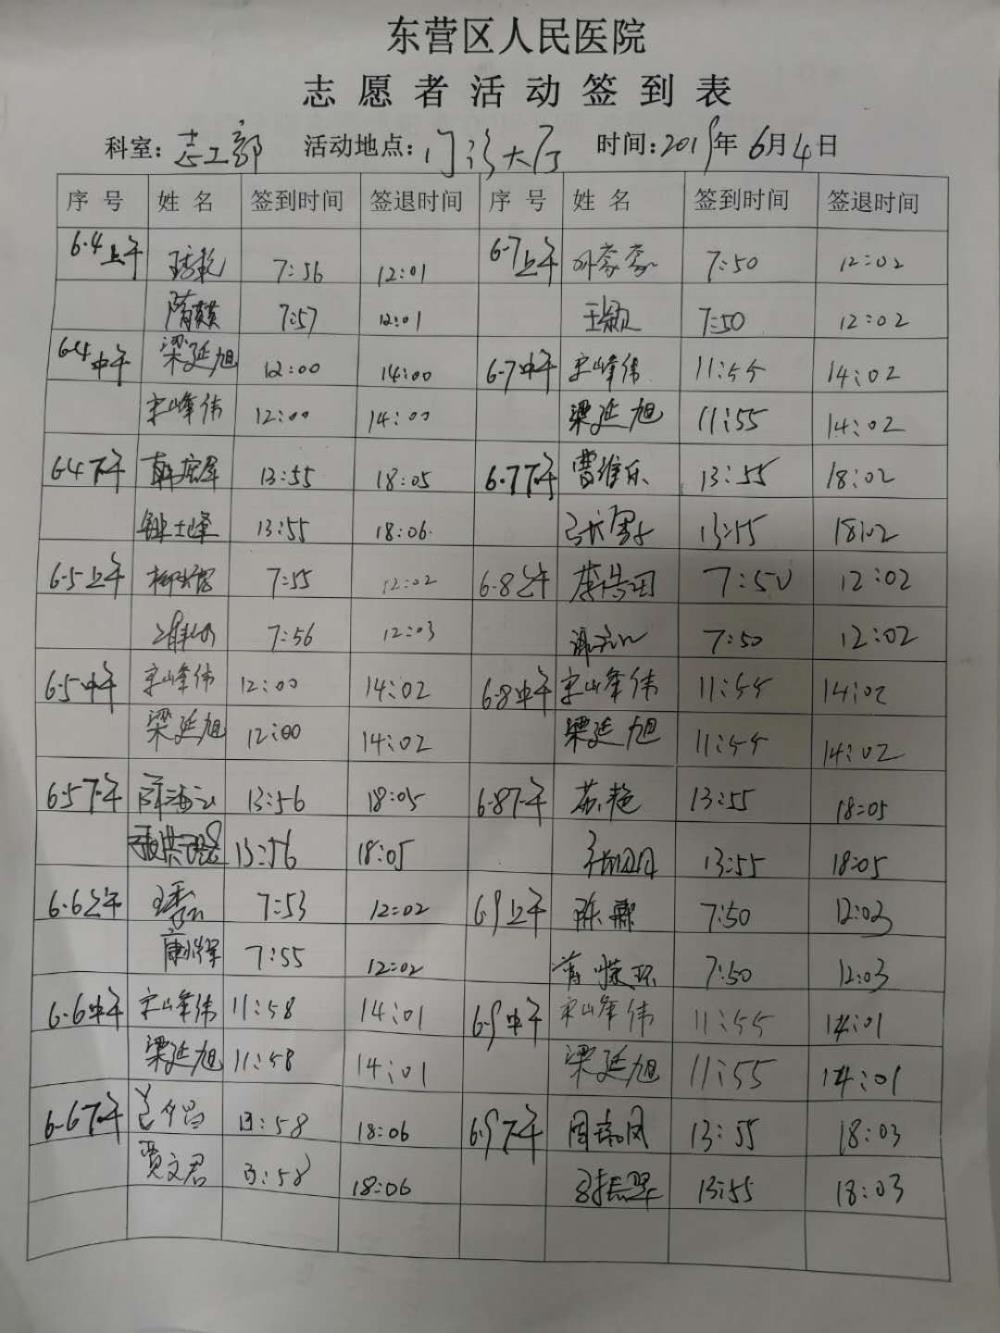 东营区人民医院
志愿者活动签到表
科室:志工部 活动地点:门诊大厅 时间:2019年6月4日
序号 姓名 签到时间 签退时间 序号 姓名 签到时间 签退时间
6.4上午 7:56 12:01 6-7上午 7:50 12:02
7:57 12:01 王颖 7:50 12:02
6.4中午 梁延旭 12:00 14:00 6-7中午 宋峰伟 11:55 14:02
宋峰伟 12:00 14:00 梁延旭 11:55 14:02
6.4下午 13:55 18:05 6.7下午 曹维乐 13:55 18:02
13:55 18:06 13:55 18:02
6.5上午 7:55 12:02 6.8上午 7:50 12:02
7:56 12:03 7:50 12:02
6.5中午 宋峰伟 12:00 14:02 6.8中午 宋峰伟 11:55 14:02
梁延旭 12:00 14:02 梁延旭 11:55 14:02
6.5下午 薛海云 13:56 18:05 6.8下午 苏艳 13:55 18:05
13:56 18:05 13:55 18:05
6.6上午 7:53 12:02 6.9上午 7:50 12:03
康辉 7:55 12:02 7:50 12:03
6.6中午 宋峰伟 11:58 14:01 6.9中午 宋峰伟 11:55 14:01
梁延旭 11:58 14:01 梁延旭 11:55 14:01
6-6下午 13:58 18:06 6.9下午 周瑞凤 13:55 18:03
贾文君 13:58 18:06 13:55 18:03